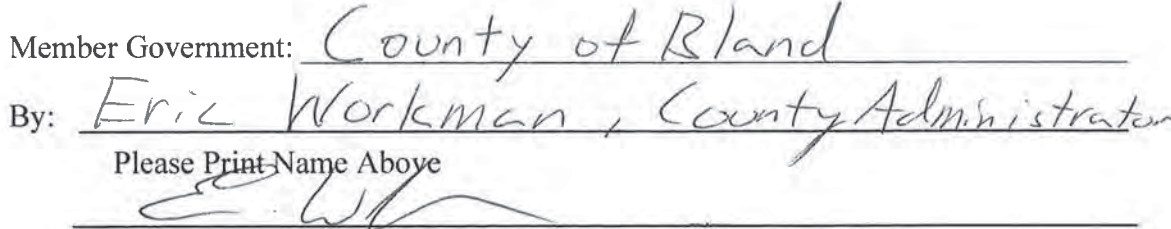 Member Government: County of Bland
By: Eric Workman, County Administrator
Please Print Name Above